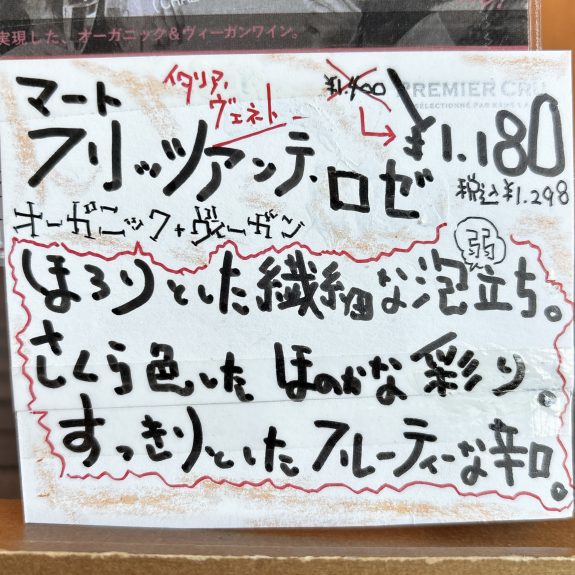 実現した、オーガニック&ヴィーガンワイン。
PREMIER CRU
マート
イタリア,
ヴェネト
¥1.400
¥1.180
フリッツァンテ・ロゼ
税込¥1.298
オーガニック+ヴィーガン
弱
ほろりとした繊細な泡立ち。
さくら色した ほのかな彩り。
すっきりとしたフルーティーな辛口。